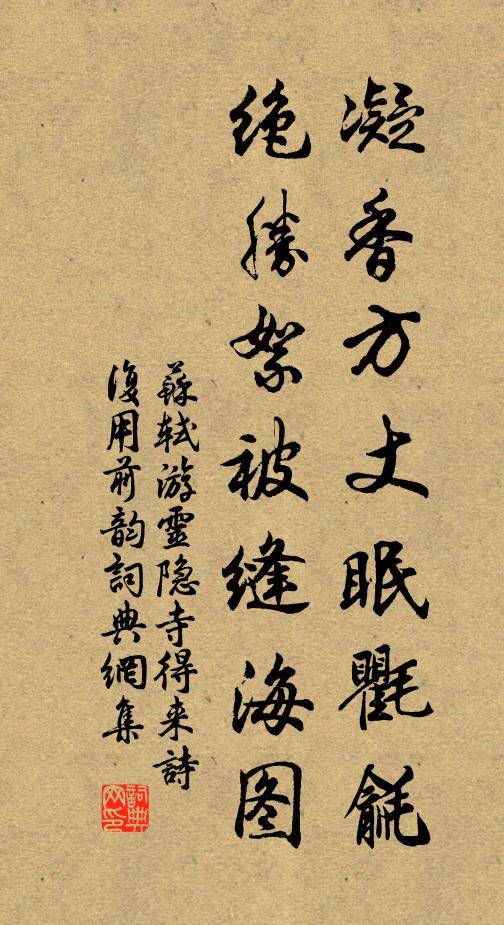 凝香方丈眠氍毹
绝勝絮被缝海图
蘇軾游靈隐寺得来詩
復用前韵詞典網集
詞典网印